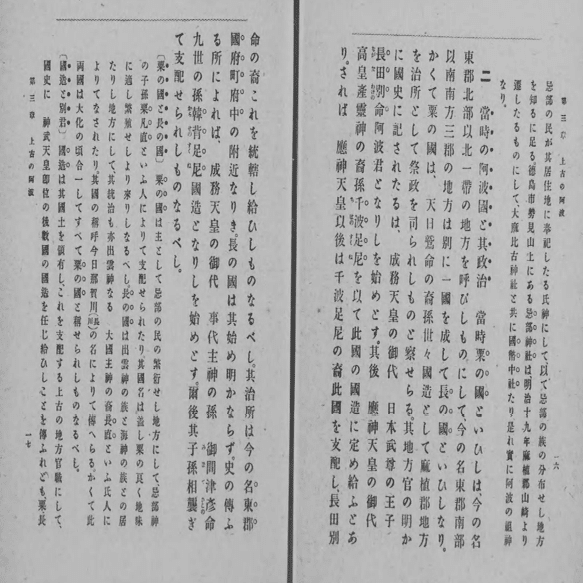 第三章 上古の阿波
忌部の民が其居住地に奉祀したる氏神にして以て忌部の族の分布せし地方
を知るに足る。德島市勢見山上にある忌部神社は明治十九年麻植郡山崎より
遷したるものにして、大麻比古神社と共に國幣中社たり是れ實に阿波の祖神
なり。
二 當時の阿波國と其政治 當時栗の國といひしは今の名
東郡北部以北一帶の地方を呼びしものにして、今の名東郡南部
以南南方三郡の地方は別に一國を成して長の國といひしなり。
かくて粟の國は、天日鷲命の裔孫世々國造として麻植郡地方
を治所として祭政を司られしものと察せらる。其地方官の明か
に國史に記されたるは、成務天皇の御代 日本武尊の王子
長田別命阿波君となりしを始めとす。其後 應神天皇の御代
高皇產靈神の裔孫千波足尼を以て此國の國造に定め給ふとあ
り。されば 應神天皇以後は千波足尼の裔此國を支配し、長田別
一六
命の裔これを統轄し給ひしものなるべし。其治所は今の名東郡
國府町府中の附近なりき。長の國は其始め明かならず。史の傳ふ
る所によれば、成務天皇の御代 事代主神の孫 御間津彥命
九世の孫韓背足尼國造となりしを始めとす。爾後其子孫相襲ぎ
て支配せられしものなるべし。
〔粟の國と長の國〕 粟の國は主として忌部の民の繁衍せし地方にして、忌部神
の子孫粟凡直といふ人によりて支配せられたり其國名は蓋し粟の良く地味
に適し繁殖せしより來りしなるべし。長の國は出雲神の族と海神の族との居
たりし地方にして、其統治も亦出雲神なる 大國主神の裔長直といふ氏人に
よりてなされたり。其國の稱呼今日那賀川(長川)の名によりて傳へらる。かくて此
兩國は大化の頃合一してすべて粟の國と稱せられしものなるべし。
〔國造と別君〕 國造は其國土を領有し、これを支配する上古の地方官職にして、
國史に 神武天皇卽位の後數國の國造を任じ給ひしことを傳ふれども、粟長
第三章 上古の阿波
一七